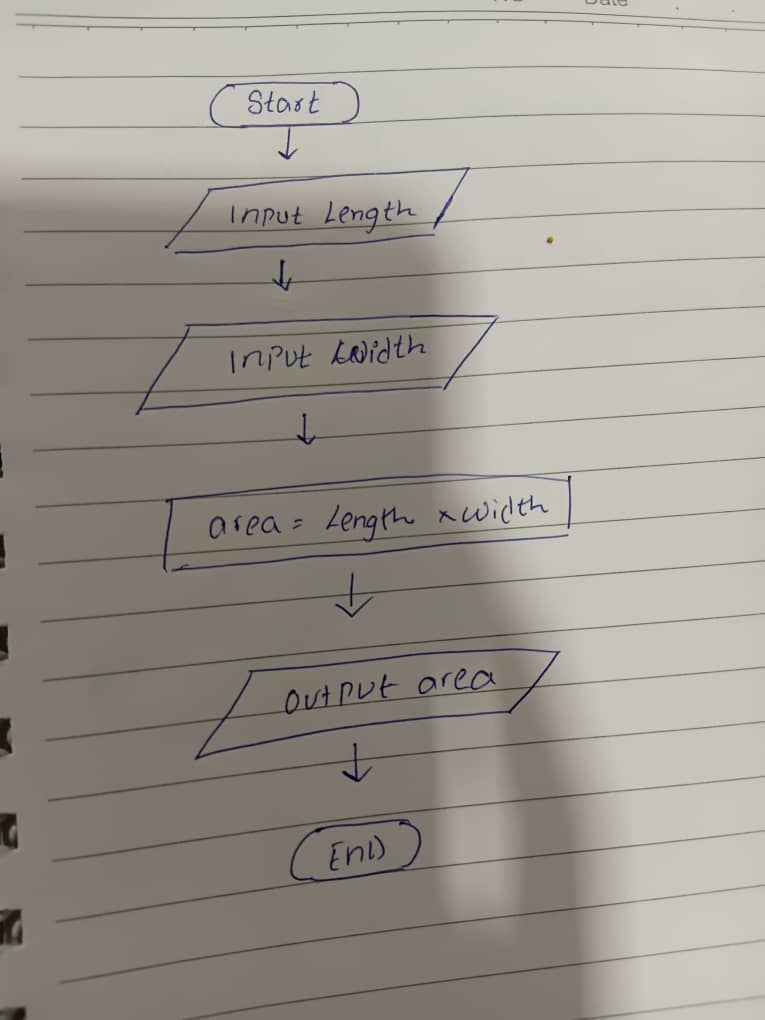 Date
Start
Input Length
Input Width
area = Length x width
Output area
End